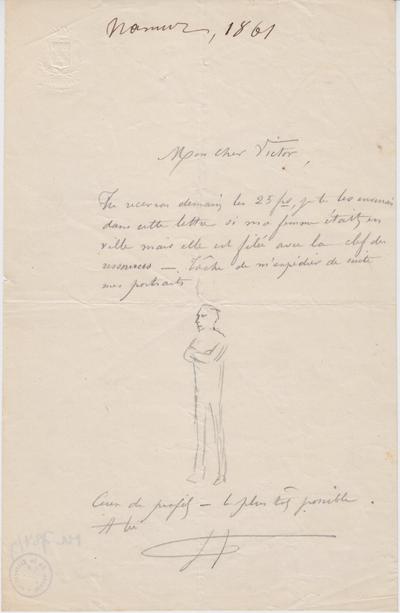 Namur, 1861
Mon cher Victor,
Tu recevras demain les 25 frs, je te les enverrais
dans cette lettre si ma femme était en
ville mais elle est filée avec la clef des
ressources — Tâche de m'expédier de suite
mes portraits
Ceux de profil — le plus tôt possible.
A toi